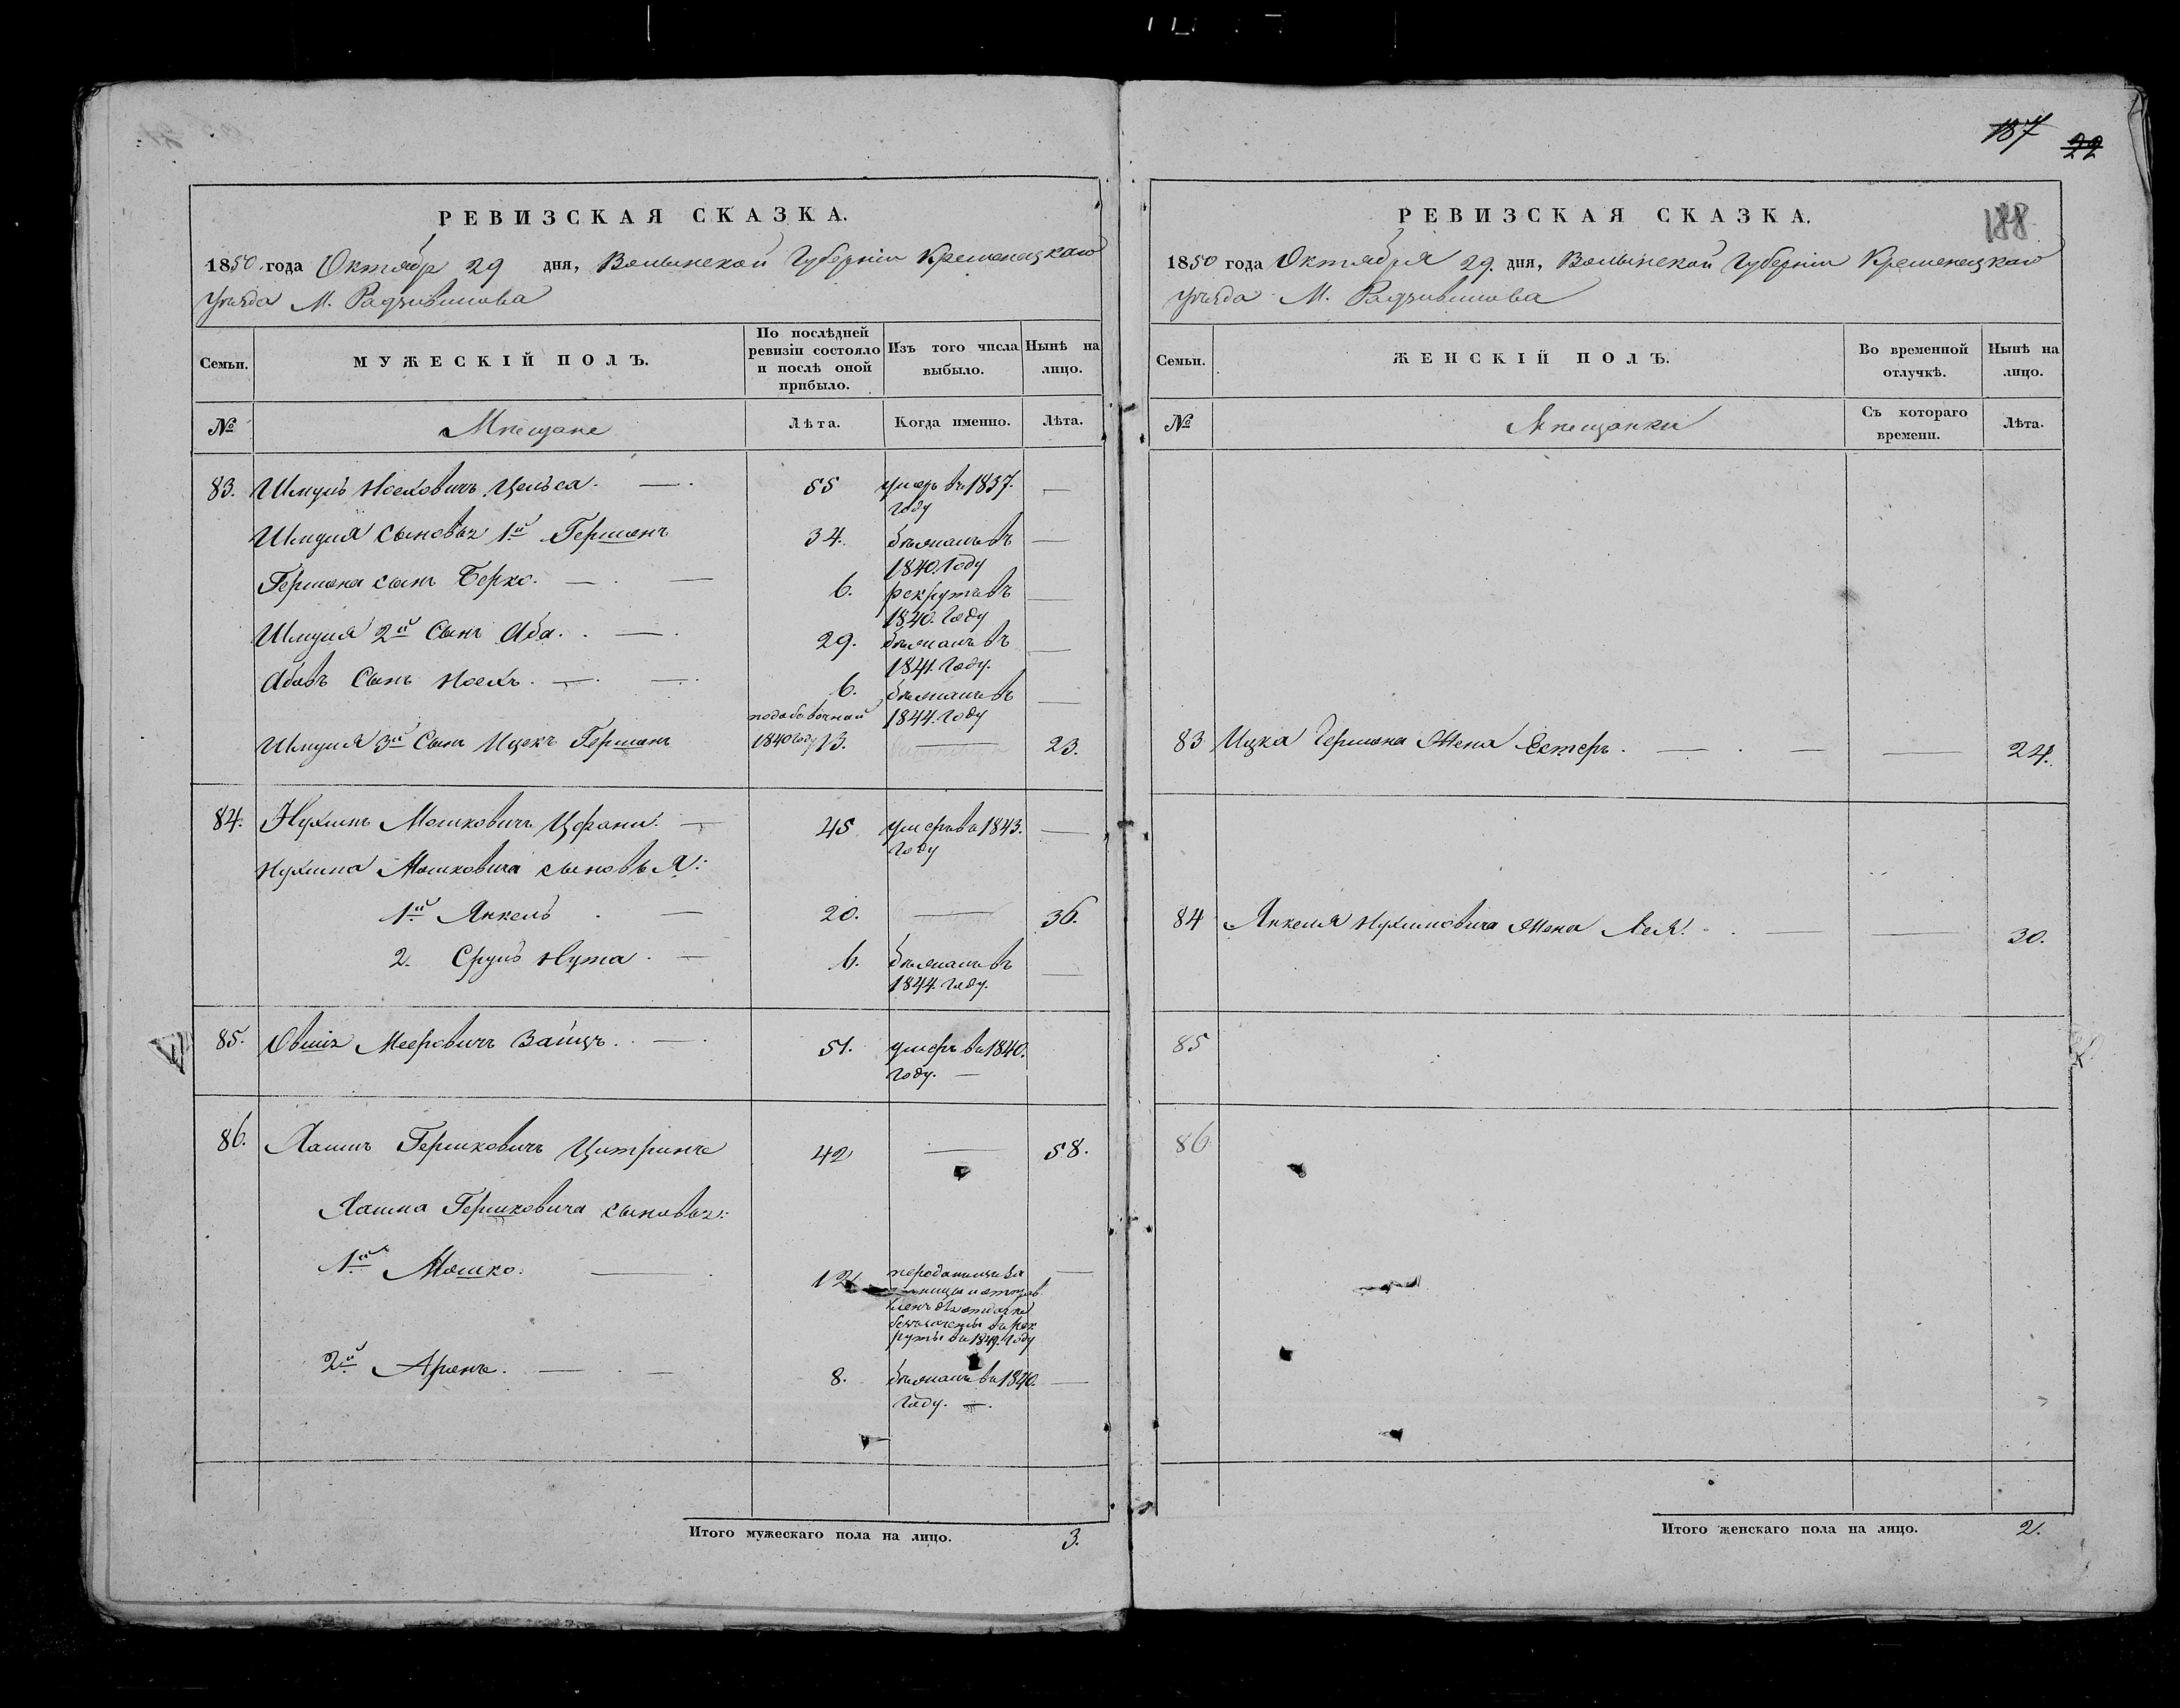 187 22
188
РЕВИЗСКАЯ СКАЗКА.
1850 года Октября 29 дня, Волынской Губернии Кременецкаго
Уѣзда М. Радзивилова
Семьи.
МУЖЕСКІЙ ПОЛЪ.
По послѣдней ревизіи состояло и послѣ оной прибыло.
Изъ того числа выбыло.
Нынѣ на лицо.
№
Мѣщане
Лѣта.
Когда именно.
Лѣта.
83. Шмуль Носковичь 55 умеръ въ 1837. году —
Шмуля сыновья 1й Гершонъ 34. бѣжалъ въ 1840. Году —
Гершона сынъ Берко. 6. рекрутъ въ 1840. Году —
Шмуля 2й Сынъ Аба. 29. бѣжалъ въ 1841. Году. —
Абовъ Сынъ Носкъ. 6. бѣжалъ въ 1844. Году —
Шмуля 3й Сынъ Ицекъ Гершонъ 1840 Году 13. — 23.
84. Нухимъ Мошковичъ 45 умеръ въ 1843. Году —
Нухима Мошковича сыновья:
1й Янкель 20. — 36.
2. Сруль Нута 6. бѣжалъ въ 1844. Году. —
85. Овшія Мееровичъ Зайцъ. 51. умеръ въ 1840. Году. —
86. Хаимъ Гершковичъ Цитринъ 42 — 58.
Хаима Гершковича сыновья:
1й Мошко. 12 въ 1849. Году —
2й Аронъ. 8. бѣжалъ въ 1840. Году. —
Итого мужескаго пола на лицо. 3.
РЕВИЗСКАЯ СКАЗКА.
1850 года Октября 29. дня, Волынской Губерніи Кременецкаго
Уѣзда М. Радзивилова
Семьи.
ЖЕНСКІЙ ПОЛЪ.
Во временной отлучкѣ.
Нынѣ на лицо.
№
Мѣщанки
Съ котораго времени.
Лѣта.
83 Ицка Гершона Жена Естеръ. — 24.
84 Янкеля Нухимовича Жена Лея. — 30.
85
86
Итого женскаго пола на лицо. 2.